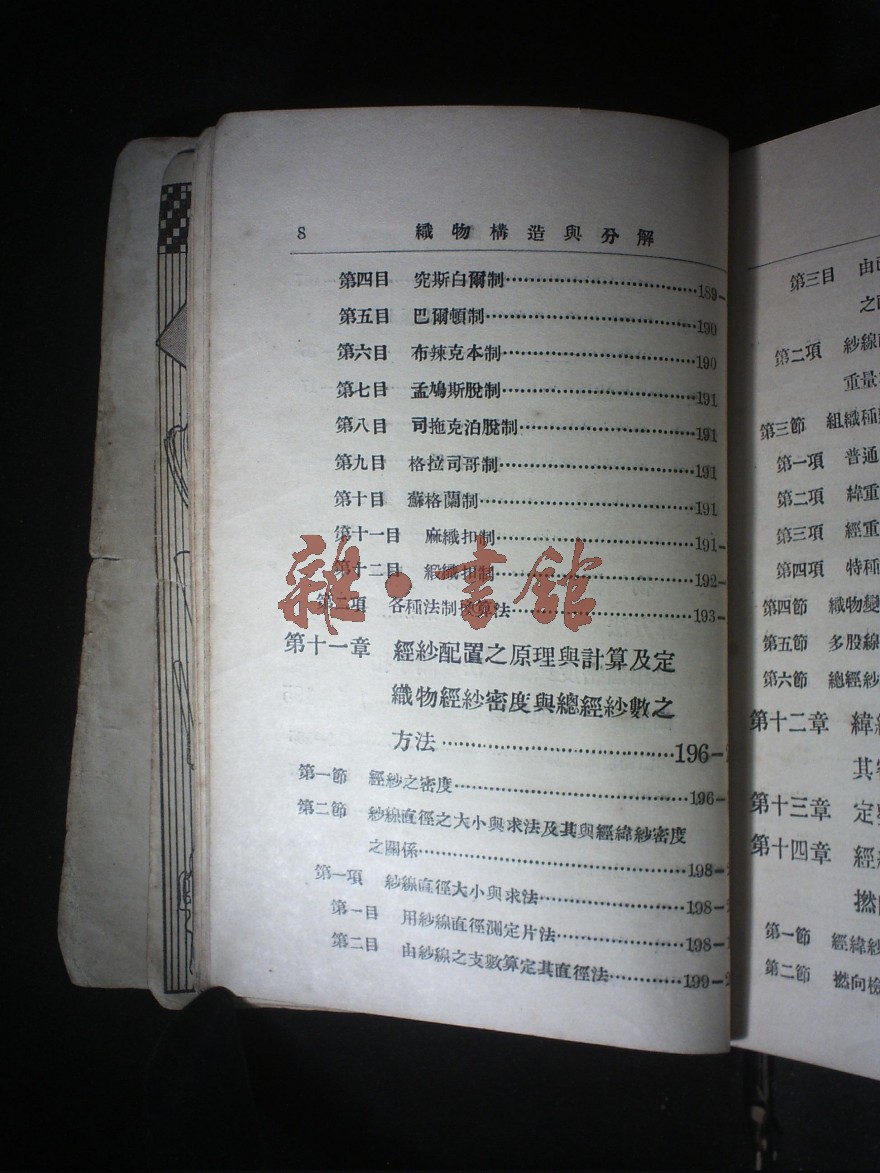 8 織物構造與分解
第四目 究斯白爾制……189-
第五目 巴爾頓制……190
第六目 布辣克本制……190
第七目 孟鳩斯脫制……191
第八目 司拖克泊脫制……191
第九目 格拉司哥制……191
第十目 蘇格蘭制……191
第十一目 麻織扣制……191-
第十二目 緞織扣制……192-
第二項 各種法制換算法……193-
第十一章 經紗配置之原理與計算及定
織物經紗密度與總經紗數之
方法……196-
第一節 經紗之密度……196-
第二節 紗線直徑之大小與求法及其與經緯紗密度
之關係……198-
第一項 紗線直徑大小與求法……198-
第一目 用紗線直徑測定片法……198-
第二目 由紗線之支數算定其直徑法……199-
雜·書館
第三目 由
之
第二項 紗線
重量
第三節 組織種
第一項 普通
第二項 緯重
第三項 經重
第四項 特種
第四節 織物變
第五節 多股線
第六節 總經紗
第十二章 緯
其
第十三章 定
第十四章 經
撚
第一節 經緯紗
第二節 撚向檢